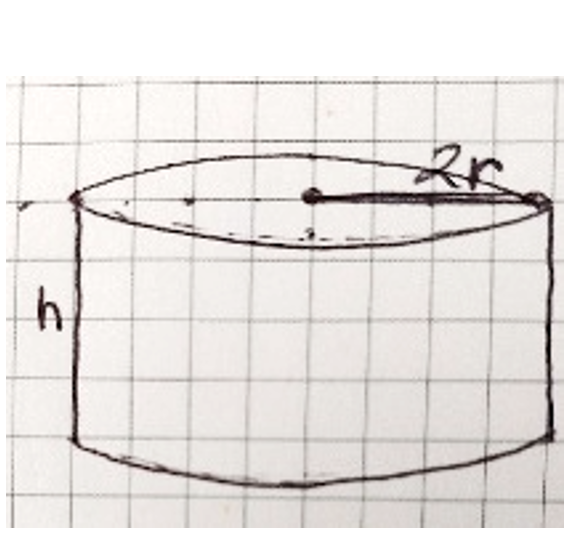 2r
h